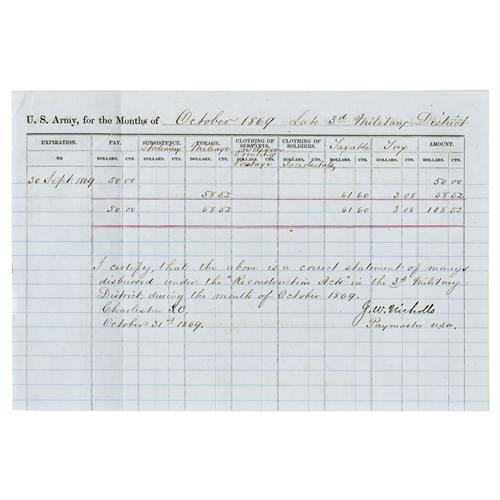 U. S. Army, for the Months of October 1869 Late 3d Military District
EXPIRATION. PAY. SUBSISTENCE. FORAGE. CLOTHING OF SERVANTS. CLOTHING OF SOLDIERS. Taxable Tax AMOUNT.
Stationery Mileage Postage Incidentals
TO DOLLARS. CTS. DOLLARS. CTS. DOLLARS. CTS. DOLLARS. CTS. DOLLARS. CTS. DOLLARS. CTS. DOLLARS. CTS. DOLLARS. CTS.
30 Sept. 1869 50 00 50 00
58 52 61 60 3 08 58 52
50 00 58 52 61 60 3 08 108 52
I certify, that the above is a correct statement of moneys
disbursed under the "Reconstruction Acts" in the 3d Military
District, during the month of October 1869.
Charleston S.C. J. W. Nicholls
October 31st 1869. Paymaster U.S.A.